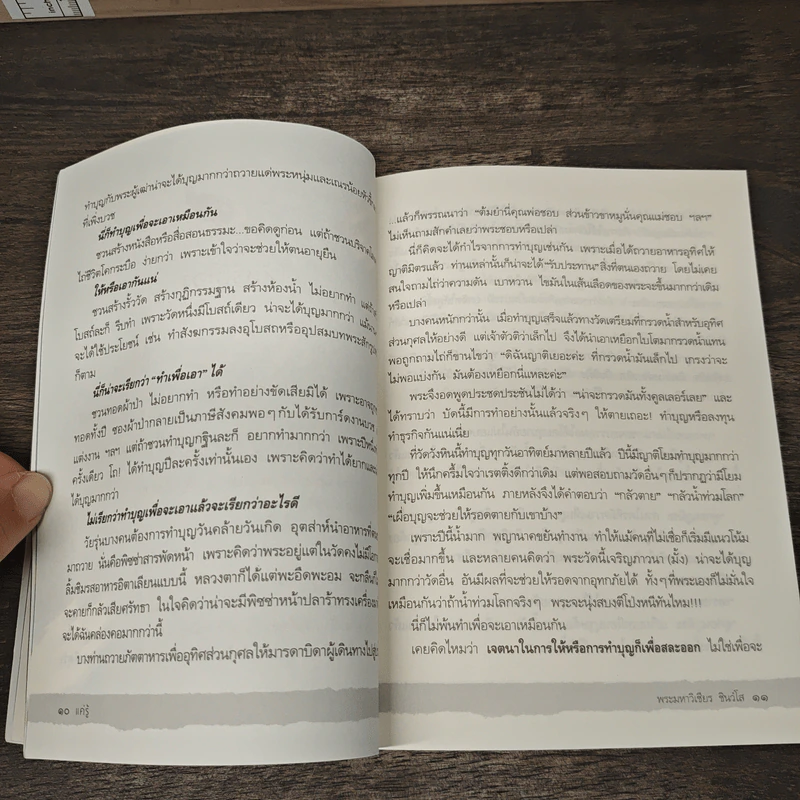 ทำบุญกับพระผู้เฒ่าน่าจะได้บุญมากกว่าถวายแด่พระหนุ่มและเณรน้อย
ที่เพิ่งบวช
นี่ก็ทำบุญเพื่อจะเอาเหมือนกัน
ชวนสร้างหนังสือหรือสื่อสอนธรรมะ...ขอคิดดูก่อน แต่ถ้าชวนบริจาค
ไถ่ชีวิตโคกระบือ ง่ายกว่า เพราะเข้าใจว่าจะช่วยให้ตนอายุยืน
ให้หรือเอากันแน่
ชวนสร้างรั้ววัด สร้างกุฏิกรรมฐาน สร้างห้องน้ำ ไม่อยากทำ
โบสถ์ละก็ รีบทำ เพราะวัดหนึ่งมีโบสถ์เดียว น่าจะได้บุญมากกว่า
จะได้ใช้ประโยชน์ เช่น ทำสังฆกรรมลงอุโบสถหรืออุปสมบทพระสัก
ก็ตาม
นี่ก็น่าจะเรียกว่า “ทำเพื่อเอา” ได้
ชวนทอดผ้าป่า ไม่อยากทำ หรือทำอย่างขัดเสียมิได้ เพราะอาจ
ทอดทั้งปี ซองผ้าป่ากลายเป็นภาษีสังคมพอๆ กับได้รับการ์ดงานบวช
แต่งงาน ฯลฯ แต่ถ้าชวนทำบุญกฐินละก็ อยากทำมากกว่า เพราะปีหนึ่ง
ครั้งเดียว โถ! ได้ทำบุญปีละครั้งเท่านั้นเอง เพราะคิดว่าทำได้ยาก
ได้บุญมากกว่า
ไม่เรียกว่าทำบุญเพื่อจะเอาแล้วจะเรียกว่าอะไรดี
วัยรุ่นบางคนต้องการทำบุญวันคล้ายวันเกิด อุตส่าห์นำอาหารที่
มาถวาย นั่นคือพิซซ่าสารพัดหน้า เพราะคิดว่าพระอยู่แต่ในวัดคงไม่มี
ลิ้มชิมรสอาหารอิตาเลียนแบบนี้ หลวงตาก็ได้แต่พะอืดพะอม จะกลืน
จะคายก็กลัวเสียศรัทธา ในใจคิดว่าน่าจะมีพิซซ่าหน้าปลาร้าทรงเครื่อง
จะได้ฉันคล่องคอมากกว่านี้
บางท่านถวายภัตตาหารเพื่ออุทิศส่วนกุศลให้มารดาบิดาผู้เดินทางไป
๑๐ แค่รู้
...แล้วก็พรรณนาว่า “ต้มยำนี่คุณพ่อชอบ ส่วนข้าวขาหมูนั่นคุณแม่ชอบ ฯลฯ”
ไม่เห็นถามสักคำเลยว่าพระชอบหรือเปล่า
นี่ก็คิดจะได้กำไรจากการทำบุญเช่นกัน เพราะเมื่อได้ถวายอาหารอุทิศให้
ญาติมิตรแล้ว ท่านเหล่านั้นก็น่าจะได้ “รับประทาน” สิ่งที่ตนเองถวาย โดยไม่เคย
สนใจถามไถ่ว่าความดัน เบาหวาน ไขมันในเส้นเลือดของพระจะขึ้นมากกว่าเดิม
หรือเปล่า
บางคนหนักกว่านั้น เมื่อทำบุญเสร็จแล้วทางวัดเตรียมที่กรวดน้ำสำหรับอุทิศ
ส่วนกุศลให้อย่างดี แต่เจ้าตัวติว่าเล็กไป จึงได้นำเอาเหยือกใบโตมากรวดน้ำแทน
พอถูกถามไถ่ก็ขานไขว่า “ดิฉันญาติเยอะค่ะ ที่กรวดน้ำมันเล็กไป เกรงว่าจะ
ไม่พอแบ่งกัน มันต้องเหยือกนี่แหละค่ะ”
พระจึงอดพูดประชดประชันไม่ได้ว่า “น่าจะกรวดมันทั้งคูลเลอร์เลย” และ
ได้ทราบว่า บัดนี้มีการทำอย่างนั้นแล้วจริงๆ ให้ตายเถอะ! ทำบุญหรือลงทุน
ทำธุรกิจกันแน่เนี่ย
ที่วัดวังหินนี้ทำบุญทุกวันอาทิตย์มาหลายปีแล้ว ปีนี้มีญาติโยมทำบุญมากกว่า
ทุกปี ให้นึกครึ้มใจว่าเรตติ้งดีกว่าเดิม แต่พอสอบถามวัดอื่นๆ ก็ปรากฏว่ามีโยม
ทำบุญเพิ่มขึ้นเหมือนกัน ภายหลังจึงได้คำตอบว่า “กลัวตาย” “กลัวน้ำท่วมโลก”
“เผื่อบุญจะช่วยให้รอดตายกับเขาบ้าง”
เพราะปีนี้น้ำมาก พญานาคขยันทำงาน ทำให้แม้คนที่ไม่เชื่อก็เริ่มมีแนวโน้ม
จะเชื่อมากขึ้น และหลายคนคิดว่า พระวัดนี้เจริญภาวนา (มั้ง) น่าจะได้บุญ
มากกว่าวัดอื่น อันมีผลที่จะช่วยให้รอดจากอุทกภัยได้ ทั้งๆ ที่พระเองก็ไม่มั่นใจ
เหมือนกันว่าถ้าน้ำท่วมโลกจริงๆ พระจะนุ่งสบงตีโป่งหนีทันไหม!!!
นี่ก็ไม่พ้นทำเพื่อจะเอาเหมือนกัน
เคยคิดไหมว่า เจตนาในการให้หรือการทำบุญก็เพื่อสละออก ไม่ใช่เพื่อจะ
พระมหาวิเชียร ชินวํโส ๑๑